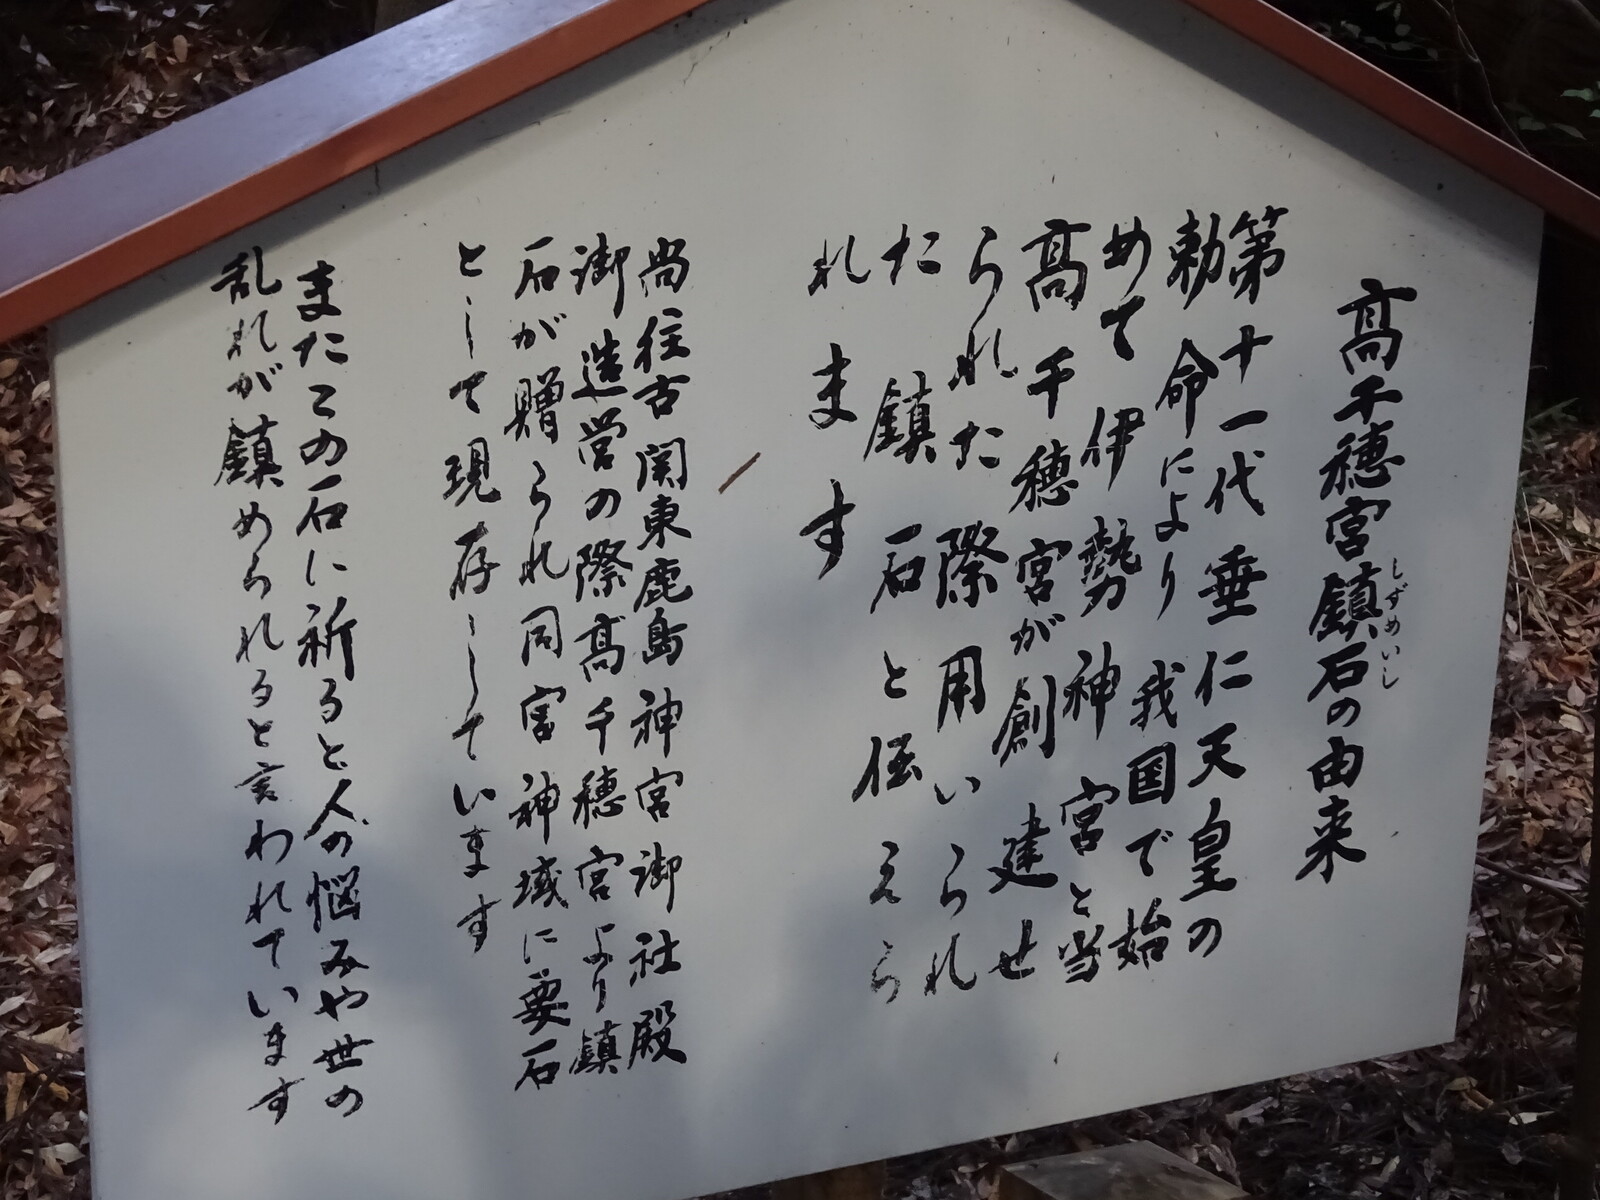 髙千穂宮鎮石の由来
しずめいし
第十一代垂仁天皇の
勅命により我国で始
めて伊勢神宮と当
髙千穂宮が創建せ
られた際用いられ
た鎮石と伝えら
れます
尚往古関東鹿島神宮御社殿
御造営の際髙千穂宮より鎮
石が贈られ同宮神域に要石
として現存しています
またこの石に祈ると人の悩みや世の
乱れが鎮められると言われています